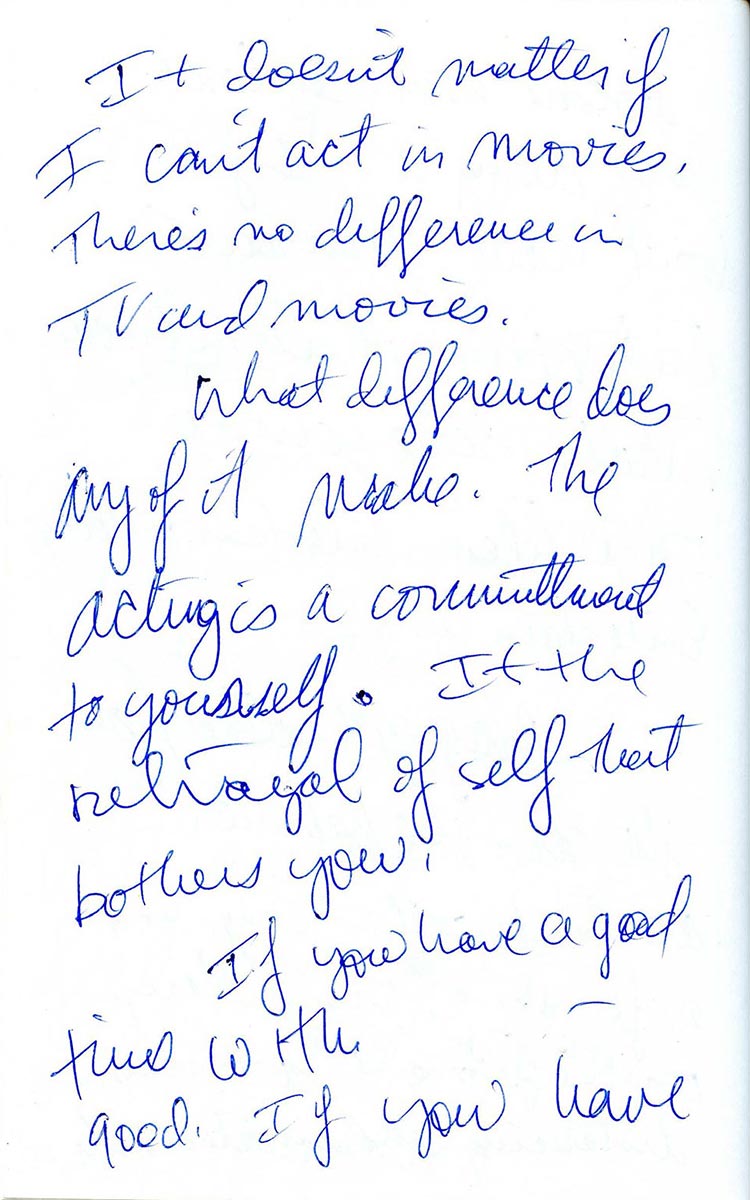 It doesn't matter if
I can't act in movies,
There's no difference in
TV and movies.
What difference does
any of it make. The
acting is a committment
to yourself. It the
betrayal of self that
bothers you.
If you have a good
time with
good. If you have